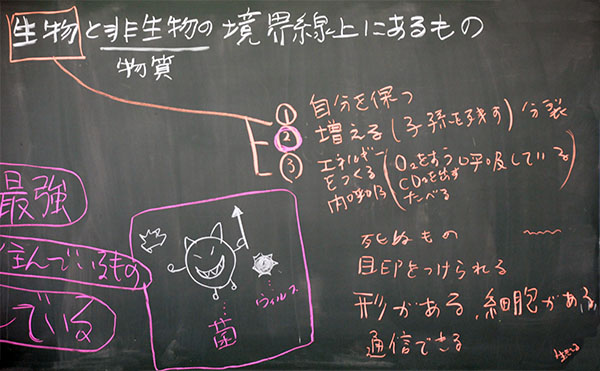 生物と非生物の境界線上にあるもの
物質
① 自分を保つ
② 増える(子孫を残す) 分裂
③ エネルギーをつくる
内呼吸
(O₂をすう 呼吸している
CO₂を出す
たべる)
死ぬもの
目印をつけられる
形がある、細胞がある
通信できる
最強
住んでいるもの
ている
菌
ウィルス